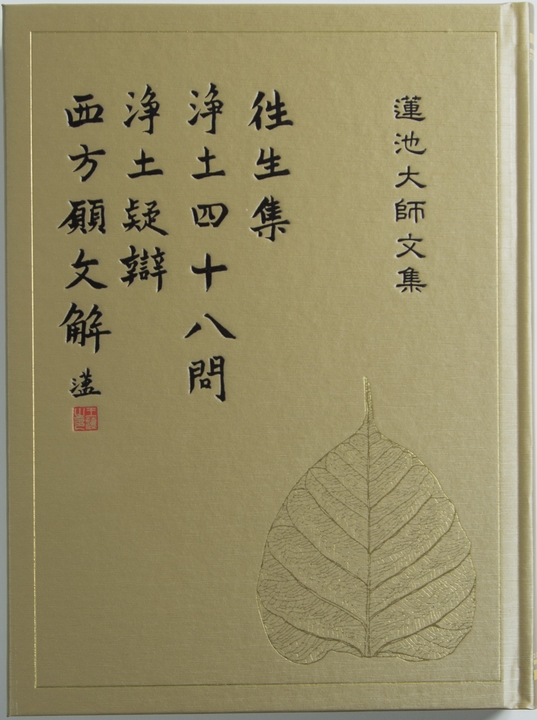 蓮池大師文集
往生集
淨土四十八問
淨土疑辯
西方願文解